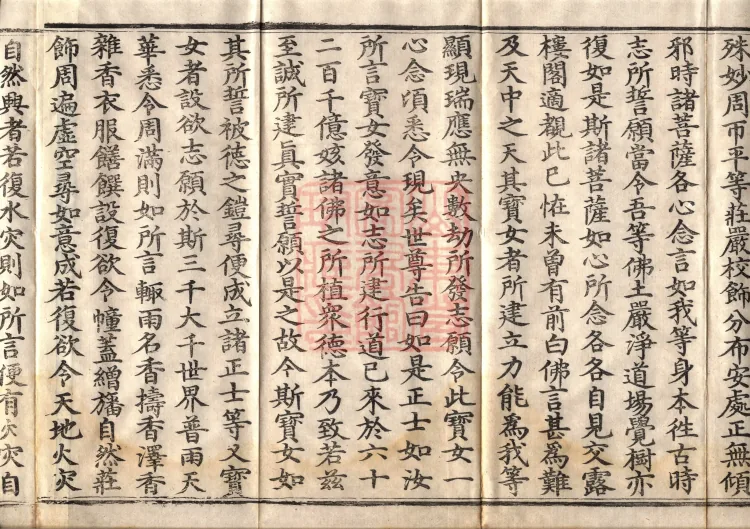 殊妙周帀平等莊嚴挍飾分布安處正無傾
邪時諸菩薩各心念言如我等身本徃古時
志所誓願當令吾等佛土嚴淨道場覺樹亦
復如是斯諸菩薩如心所念各各自見交露
樓閣適覩此已恠未曾有前白佛言甚爲難
及天中之天其寶女者所建立力能爲我等
顯現瑞應無央數劫所發志願令此寶女一
心念頃悉令現矣世尊告曰如是正士如汝
所言寶女發意如志所建行道已來於六十
二百千億姟諸佛之所植衆德本乃致若茲
至誠所建眞實誓願以是之故今斯寶女如
其所誓被德之鎧尋便成立諸正士等又寶
女者設欲志願於斯三千大千世界普雨天
華悉令周滿則如所言輙雨名香擣香澤香
雜香衣服饍饌設復欲令幢蓋繒旛自然莊
飾周遍虛空尋如意成若復欲令天地火灾
自然興者若復水灾則如所言便有火灾自